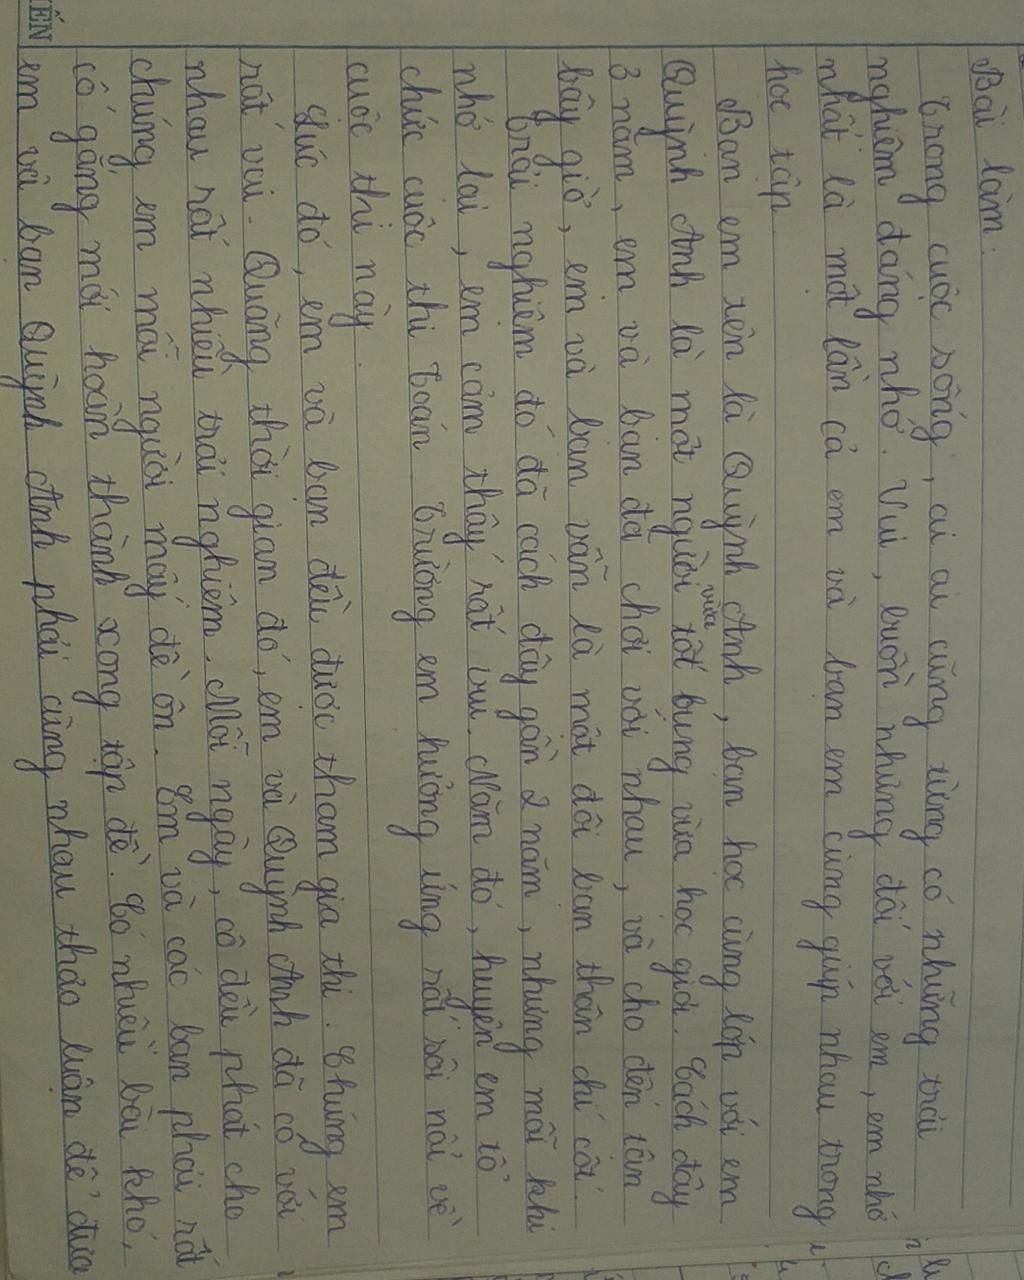 Bài làm.
Trong cuộc sống, ai ai cũng từng có những trải
nghiệm đáng nhớ. Vui, buồn nhưng đối với em, em nhớ
nhất là một lần cả em và bạn em cùng giúp nhau trong
học tập.
Bạn em tên là Quỳnh Anh, bạn học cùng lớp với em
Quỳnh Anh là một người vừa tốt bụng vừa học giỏi. Cách đây
3 năm, em và bạn đã chơi với nhau, và cho đến tận
bây giờ, em và bạn vẫn là một đôi bạn thân chí cốt.
Trải nghiệm đó đã cách đây gần 2 năm, nhưng mỗi khi
nhớ lại, em cảm thấy rất vui. Năm đó, huyện em tổ
chức cuộc thi Toán. Trường em hưởng ứng rất sôi nổi về
cuộc thi này.
Lúc đó, em và bạn đều được tham gia thi. Chúng em
rất vui. Quãng thời gian đó, em và Quỳnh Anh đã có với
nhau rất nhiều trải nghiệm. Mỗi ngày, cô đều phát cho
chúng em mỗi người mấy đề ôn. Em và các bạn phải rất
cố gắng mới hoàn thành xong tập đề. Có nhiều bài khó,
em và bạn Quỳnh Anh phải cùng nhau thảo luận để đưa